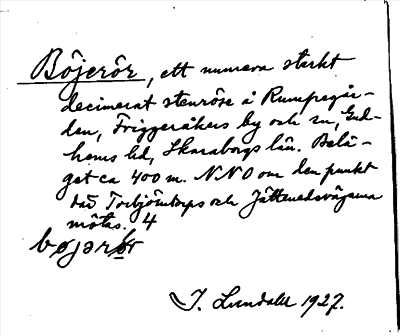 Böjerör, ett numera starkt
decimerat stenröse å Rumpegår-
den, Friggeråkers by och sn, Gud-
hems hd, Skaraborgs län. Belä-
get ca 400 m. NNO om den punkt
där Torbjörntorps och Jättenedsvägarna
mötas. 4
J. Lundahl 1927.